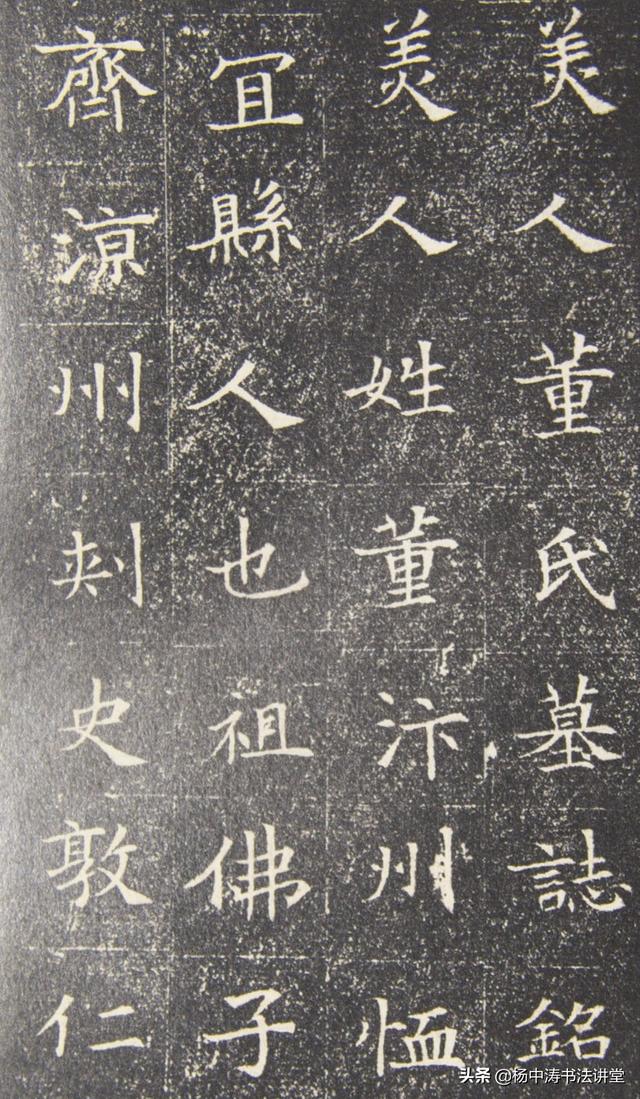 美人董氏墓誌銘
美人姓董汴州恤
冝縣人也祖佛子
齊涼州刺史敦仁
头条 @杨中涛书法讲堂